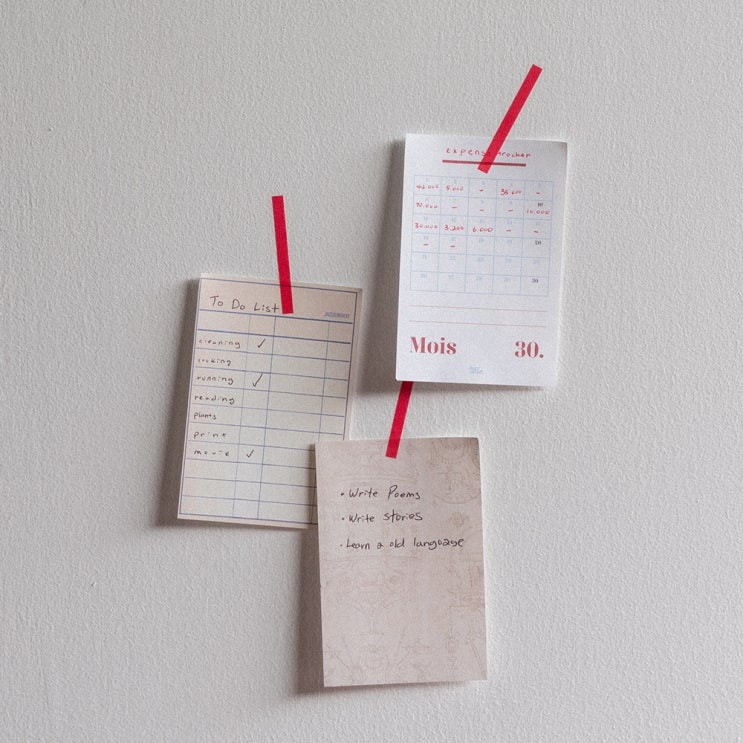 To Do List
cleaning ✓
cooking
running ✓
reading
plants
print
movie ✓
expense tracker
5.000 - 35.000 -
70.000 - - - 10.000
30.000 3.200 6.000 - -
- -
30
Mois 30.
• Write Poems
• Write stories
• Learn a old language